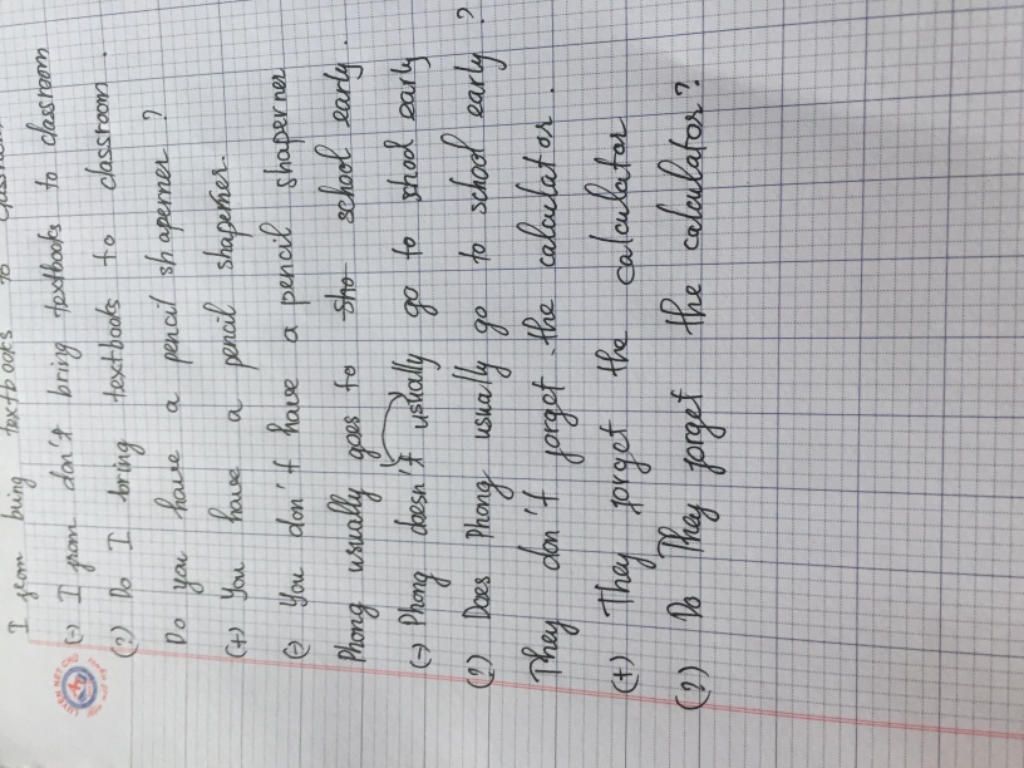 I from bring textbooks to classroom
(-) I from don't bring textbooks to classroom
(?) Do I bring textbooks to classroom.
Do you have a pencil shaperner?
(+) You have a pencil shaperner.
(-) You don't have a pencil shaperner
Phong usually goes to sho school early.
(-) Phong doesn't usually go to shool early
(?) Does Phong usually go to school early?
They don't forget the calculator.
(+) They forget the calculator
(?) Do They forget the calculator?